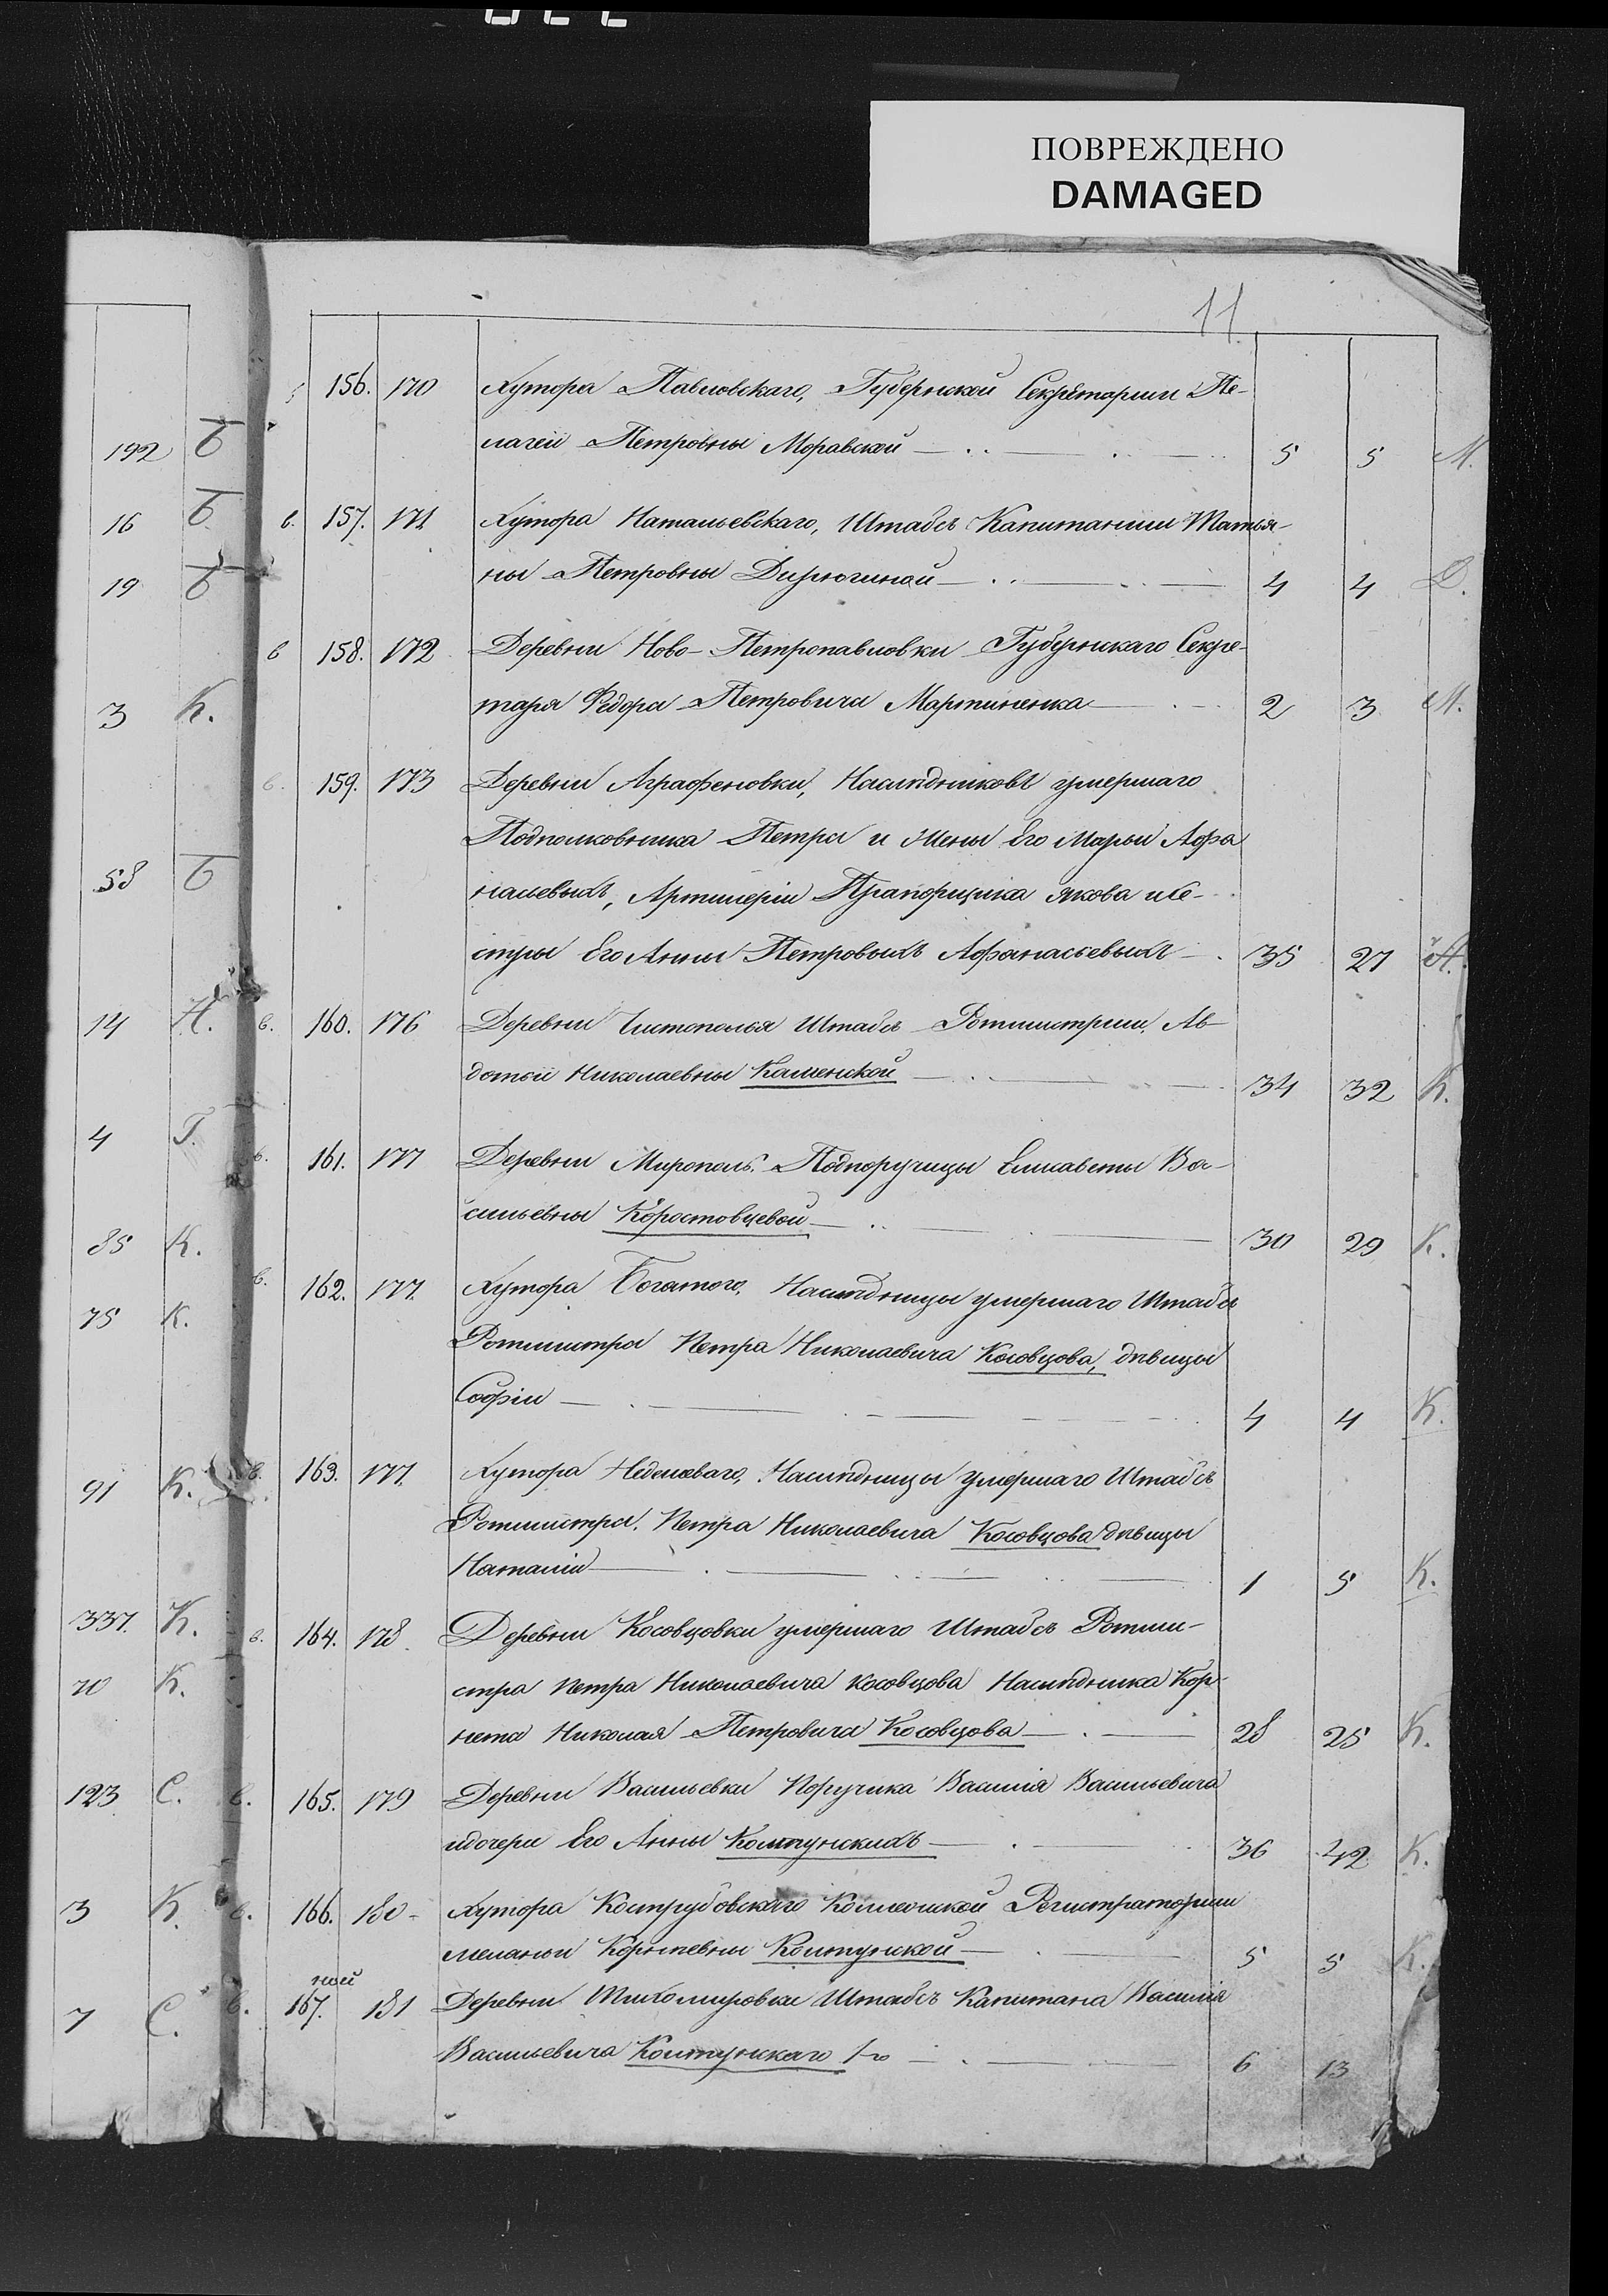 ПОВРЕЖДЕНО
DAMAGED
11
192 Б
16 Б
19 Б
3 К.
58 Б
14 Н.
4 Г.
85 К.
75 К.
91 К.
337. К.
70 К.
123 С.
3 К.
7 С.
156. 170 Хутора Павловскаго, Губернской Секретарши Пе-
лагеи Петровны Моравской 5 5 М.
в. 157. 171 Хутора Натальевскаго, Штабсъ Капитанши Татья-
ны Петровны Дирюгиной 4 4 Д.
в 158. 172 Деревни Ново-Петропавловки Губернскаго Секре-
таря Федора Петровича Мартиненка 2 3 М.
в. 159. 173 Деревни Аграфеновки, Наслѣдниковъ умершаго
Подполковника Петра и Жены Его Марьи Афа
насьевыхъ, Артилеріи Прапорщика Якова и Се-
стры Его Анны Петровыхъ Афанасьевыхъ 35 27 А.
в. 160. 176 Деревни Чистополья Штабсъ Ротмистрши Ав-
дотьи Николаевны Каменской 34 32 К.
в. 161. 177 Деревни Мирополь. Подпоручицы Елисаветы Ва-
сильевны Коростовцевой 30 29 К.
в. 162. 177. Хутора Богатого, Наслѣдницы умершаго Штабсъ
Ротмистра Петра Николаевича Косовцова, дѣвицы
Софіи 4 4 К.
в. 163. 177. Хутора Неделеваго, Наслѣдницы умершаго Штабсъ
Ротмистра. Петра Николаевича Косовцова дѣвицы
Наталіи 1 5 К.
в. 164. 178. Деревни Косовцовки умершаго Штабсъ Ротми-
стра Петра Николаевича Косовцова Наслѣдника Кор-
нета Николая Петровича Косовцова 28 25 К.
в. 165. 179 Деревни Васильевки Поручика Василія Васильевича
и дочери Его Анны Колтунскихъ 36 42 К.
в. 166. 180 Хутора Кострубовскаго Коллежской Регистраторши
Меланьи Корнѣевны Колтунской 5 5 К.
в. 167. 181 Деревни Тихомировки Штабсъ Капитана Василія
Васильевича Колтунскаго 1го 6 13